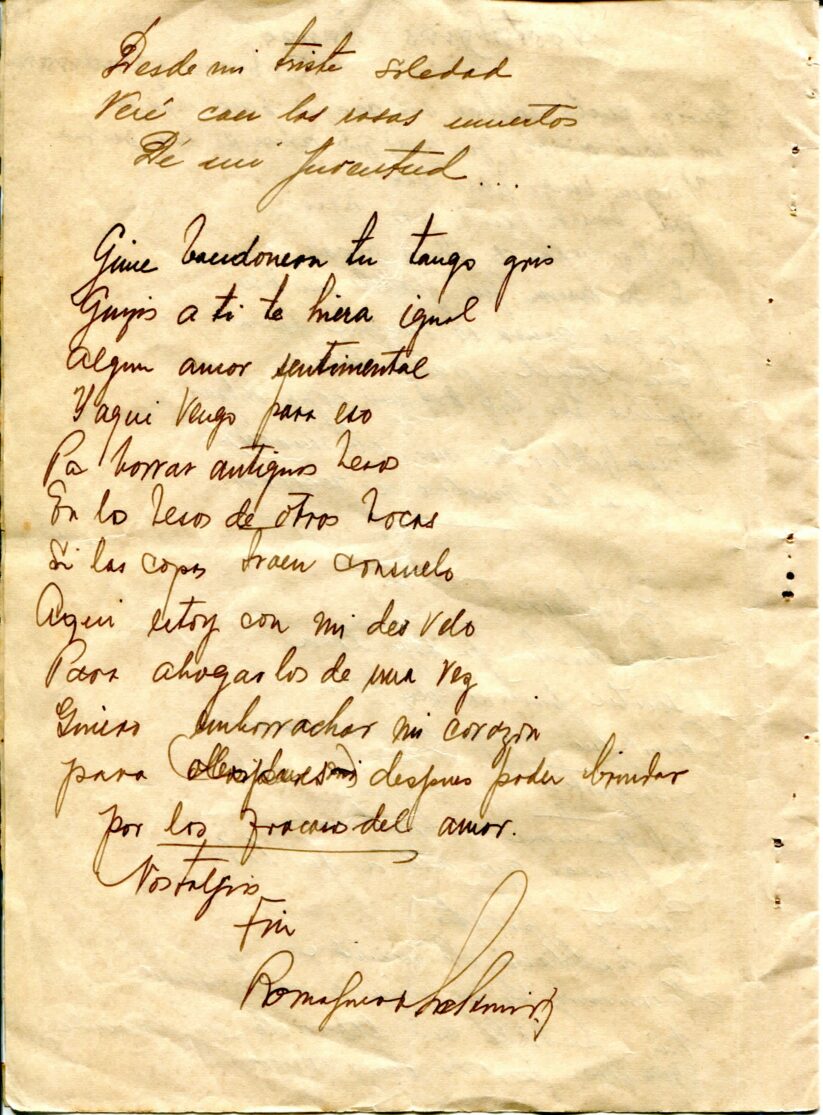 Desde mi triste soledad
Veré caer las rosas muertas
De mi Juventud...
Gime bandoneon tu tango gris
Quizis a ti te hiera igual
algun amor sentimental
Y aqui vengo para eso
Pa borrar antiguos besos
En los besos de otros bocas
Si las copas traen consuelo
Aqui estoy con mi desvelo
Para ahogarlos de una vez
Quiero emborrachar mi corazón
para despues poder brindar
por los fracasos del amor.
Nostalgias
Fin